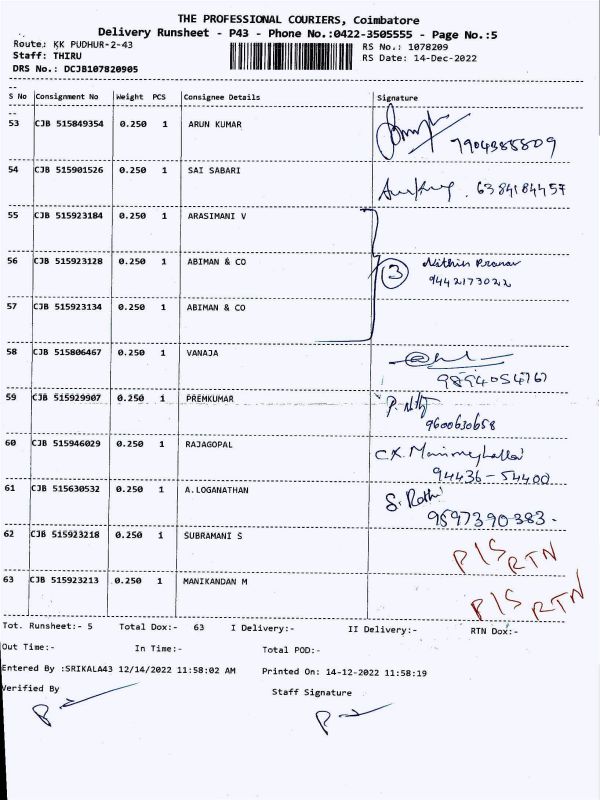 THE PROFESSIONAL COURIERS, Coimbatore
Delivery Runsheet - P43 - Phone No.:0422-3505555 - Page No.:5
Route: KK PUDHUR-2-43 RS No.: 1078209
Staff: THIRU RS Date: 14-Dec-2022
DRS No.: DCJB107820905
S No Consignment No Weight PCS Consignee Details Signature
53 CJB 515849354 0.250 1 ARUN KUMAR
7904385809
54 CJB 515901526 0.250 1 SAI SABARI
6384184457
55 CJB 515923184 0.250 1 ARASIMANI V
56 CJB 515923128 0.250 1 ABIMAN & CO 3 Nithin Pranav
9442173022
57 CJB 515923134 0.250 1 ABIMAN & CO
58 CJB 515806467 0.250 1 VANAJA
9894054767
59 CJB 515929907 0.250 1 PREMKUMAR
9600630658
60 CJB 515946029 0.250 1 RAJAGOPAL C.K.
94436-54400
61 CJB 515630532 0.250 1 A.LOGANATHAN S. Rathi
9597390383.
62 CJB 515923218 0.250 1 SUBRAMANI S P/S RTN
63 CJB 515923213 0.250 1 MANIKANDAN M P/S RTN
Tot. Runsheet:- 5 Total Dox:- 63 I Delivery:- II Delivery:- RTN Dox:-
Out Time:- In Time:- Total POD:-
Entered By :SRIKALA43 12/14/2022 11:58:02 AM Printed On: 14-12-2022 11:58:19
Verified By Staff Signature